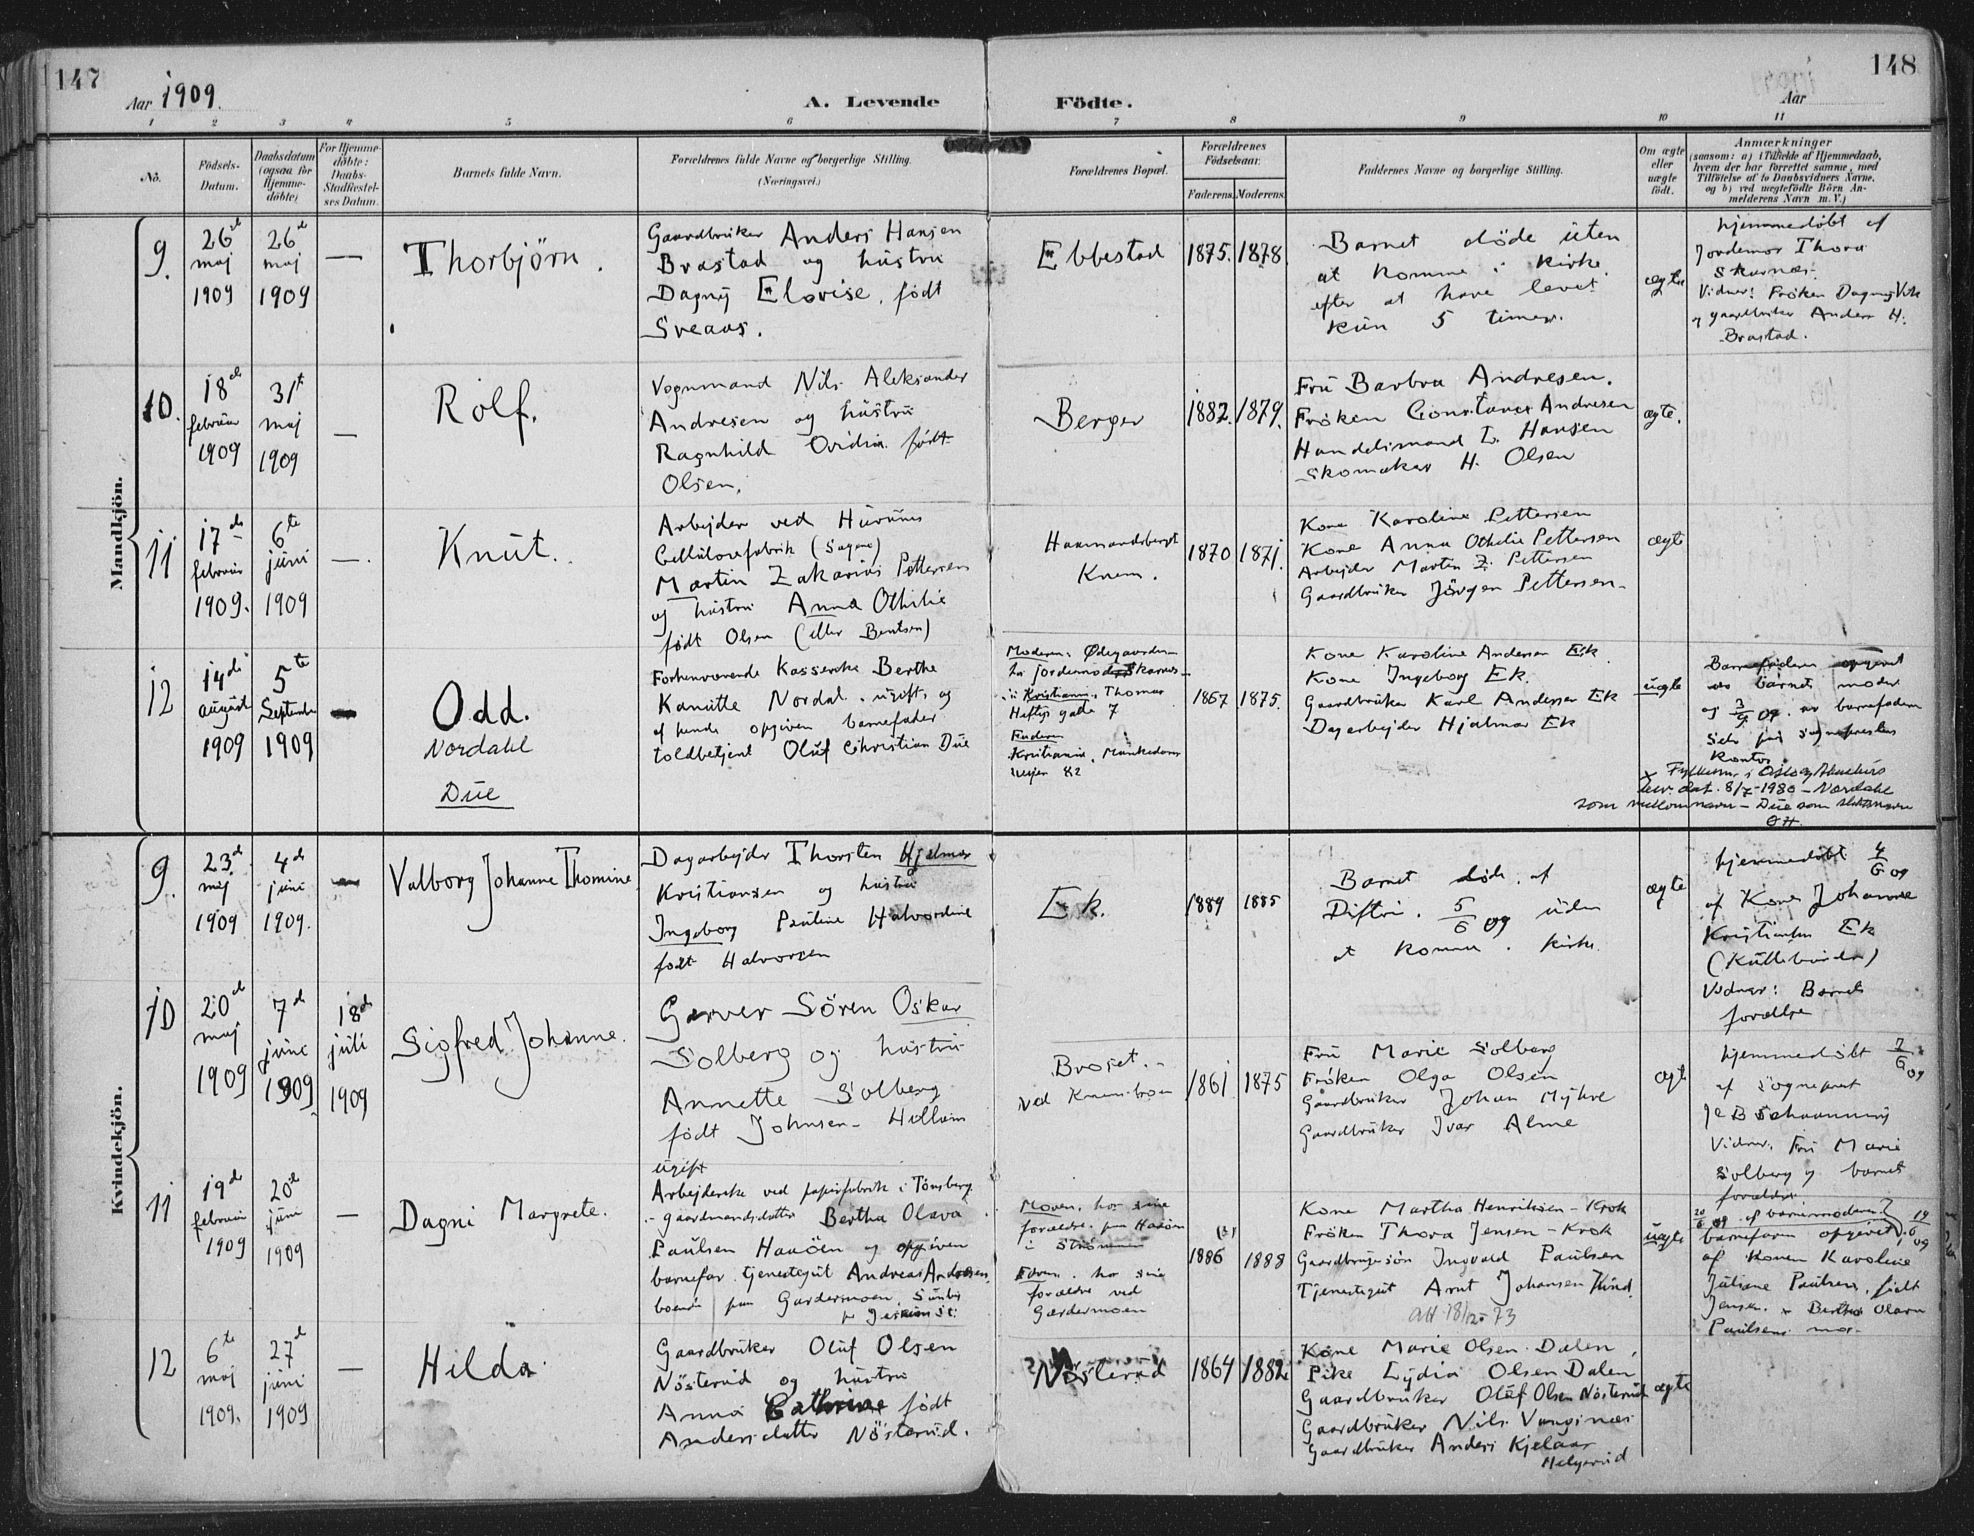 147
Aar 1909.
A. Levende
Födte.
Aar
148
1 2 3 4 5 6 7 8 9 10 11
No.
Födsels-
Datum.
Daabsdatum
(ogsaa for
Hjemme-
döbte)
For Hjemme-
döbte:
Daabs-
Stadfæstel-
ses Datum.
Barnets fulde Navn.
Forældrenes fulde Navne og borgerlige Stilling.
(Næringsvei.)
Forældrenes Bopæl.
Forældrenes
Födselsaar.
Faderens. Moderens.
Faddernes Navne og borgerlige Stilling.
Om ægte
eller
uægte
födt.
Anmærkninger
(saasom: a) i Tilfælde af Hjemmedaab,
hvem der har forrettet samme, med
Tilföielse af to Daabsvidners Navne,
og b) ved uægtefödte Börn An-
melderens Navn m. V.)
Mandkjön.
9.
26de
maj
1909
26de
maj
1909
—
Thorbjörn.
Gaardbruker Anders Hansen
Brastad og hustru
Dagny Elovise, født
Sveaas.
Ebbestad
1875. 1878.
Barnet døde uten
at komme i kirke
efter at have levet
kun 5 timer.
ægte
hjemmedøbt af
Jordemor Thora
Skarnæs.
Vidner: Fröken Dagny
og gaardbruker Anders H.
Brastad.
10.
18de
februar
1909
31te
maj
1909
—
Rolf.
Vognmand Nils Aleksander
Andresen og hustru
Ragnhild Ovidia født
Olsen.
Berger
1882. 1879.
Fru Barbra Andresen.
Fröken Constance Andresen
Handelsmand L. Hansen
Skomaker H. Olsen
ægte.
11
17de
februar
1909.
6te
juni
1909
—
Knut.
Arbejder ved Hurums
Cellulosefabrik (Sagene)
Martin Zakarias Pettersen
og hustru Anna Othilie
født Olsen (eller Bentsen)
Knem.
1870 1871.
Kone Karoline Pettersen
Kone Anna Othilie Pettersen
Arbejder Martin Z. Pettersen
Gaardbruker Jörgen Pettersen
ægte
12
14de
august
1909
5te
September
1909
—
Odd.
Nordahl
Due
Forhenværende Kassererske Berthe
Kanutte Nordal, ugift, og
af hende opgiven barnefader
toldbetjent Oluf Christian Due
Moderen: Ødegaarden
hos jordemor Skarnæs
i Kristiania, Thomas
Heftys gade 7
Faderen
Kristiania, Munkedams
vejen 82
1867 1875.
Kone Karoline Andersen Ek.
Kone Ingeborg Ek.
Gaardbruker Karl Andersen Ek
Dagarbejder Hjalmar Ek
uægte
Barnefaderen opgivet
av barnets moder
og 3/9 09. av barnefaderen
selv paa sogneprestens
kontor.
x Fylkesm. i Oslo og Akershus
bev. dat. 8/7-1980 - Nordahl
som mellomnavn - Due som slektsnavn
OH.
Kvindekjön.
9.
23de
maj
1909
4de
juni
1909.
—
Valborg Johanne Thomine
Dagarbejder Thorsten Hjalmar
Kristiansen og hustru
Ingeborg Pauline Halvordine
født Halvorsen
Ek.
1884 1885
Barnet døde af
Difteri. 5/6 09 uden
at komme i kirke.
ægte
hjemmedøbt 4/6 09
af Kone Johanne
Kristiansen Ek
(Kullebunden)
Vidner: Barnets
forældre
10
20de
maj
1909
7de
juni
1909
18de
juli
1909
Sigfred Johanne.
Garver Sören Oskar
Solberg og hustru
Annette Solberg
født Johnsen - Hellum
Braset.
ved Knem-broen
1861 1875
Fru Marie Solberg
Fröken Olga Olsen
Gaardbruker Johan Myhre
Gaardbruker Ivar Alme
ægte
hjemmedøbt 7/6 09
af Sogneprest
Je B Schaanning
Vidner: Fru Marie
Solberg og barnets
forældre.
11
19de
februar
1909
20de
juni
1909
—
Dagni Margrete.
ugift
Arbejderske ved papirfabrik i Tönsberg
gaardmandsdatter Bertha Olava
Paulsen Haaöen og opgiven
barnefar tjenestegut Andreas Andresen,
boende paa Gardermoen
Moren, hos sine
forældre paa Haaöen
i Strömmen
Faren, hos sine
forældre ved
Gardermoen
1886 1888
Kone Martha Henriksen - Krok
Fröken Thora Jensen - Krok
Gaardbrugersön Ingvald Paulsen
Tjenestegut Arnt Johansen Hind.
att 18/12-73
uægte
20/6 09 af barnemoderen
barnefaren opgivet, 19/6 09
af Konen Karoline
Juliane Paulsen, født
Jensen. Bertha Olava
Paulsens mor.
12
6te
maj
1909.
27de
juni
1909
—
Hilda
Gaardbruker Oluf Olsen
Nösterud og hustru
Anna Cathrine født
Andersdatter Nösterud.
Nösterud
1864 1882
Kone Marie Olsen Dalen,
Pike Lydia Olsen Dalen
Gaardbruker Oluf Olsen Nösterud
Gaardbruker Nils Vangsnæs
Gaardbruker Anders Kjelaas
Helgerud
ægte